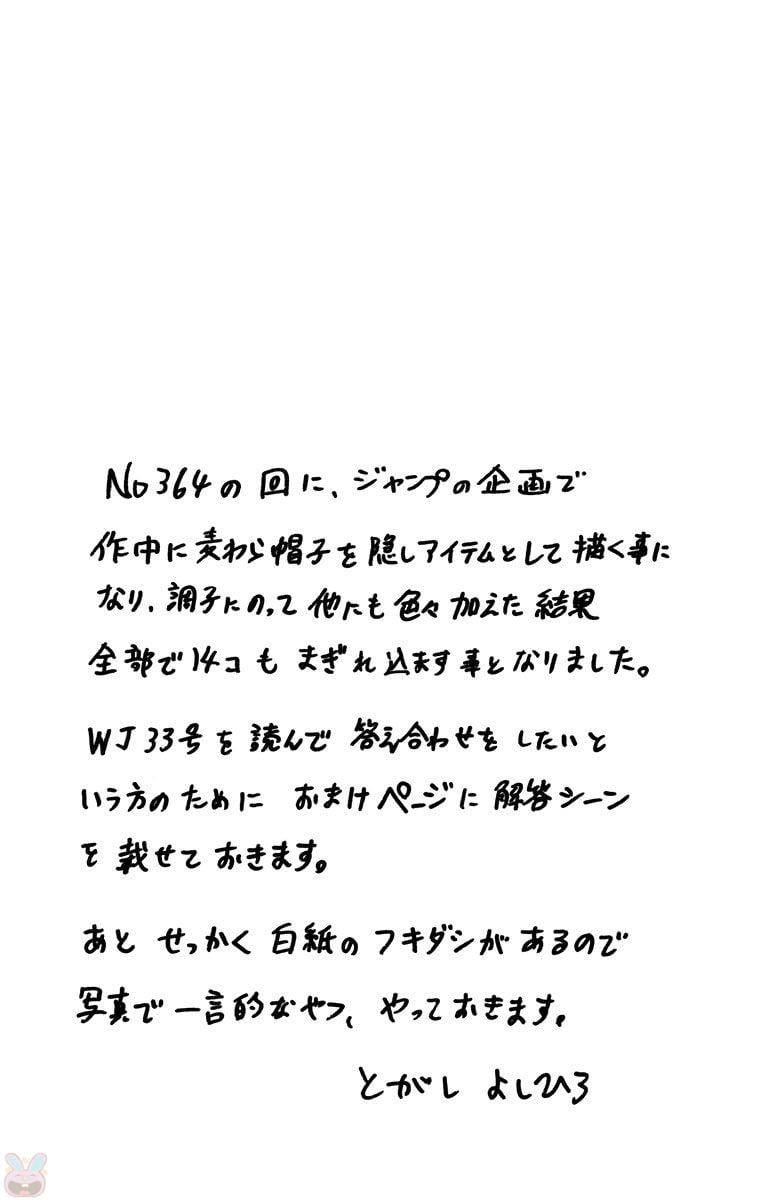 No364の回に、ジャンプの企画で
作中に麦わら帽子を隠しアイテムとして描く事に
なり、調子にのって他にも色々加えた結果
全部で14コもまぎれ込ます事となりました。
WJ33号を読んで答え合わせをしたいと
いう方のためにおまけページに解答シーン
を載せておきます。
あとせっかく白紙のフキダシがあるので
写真で一言的なやつ、やっておきます。
とがしよしひろ